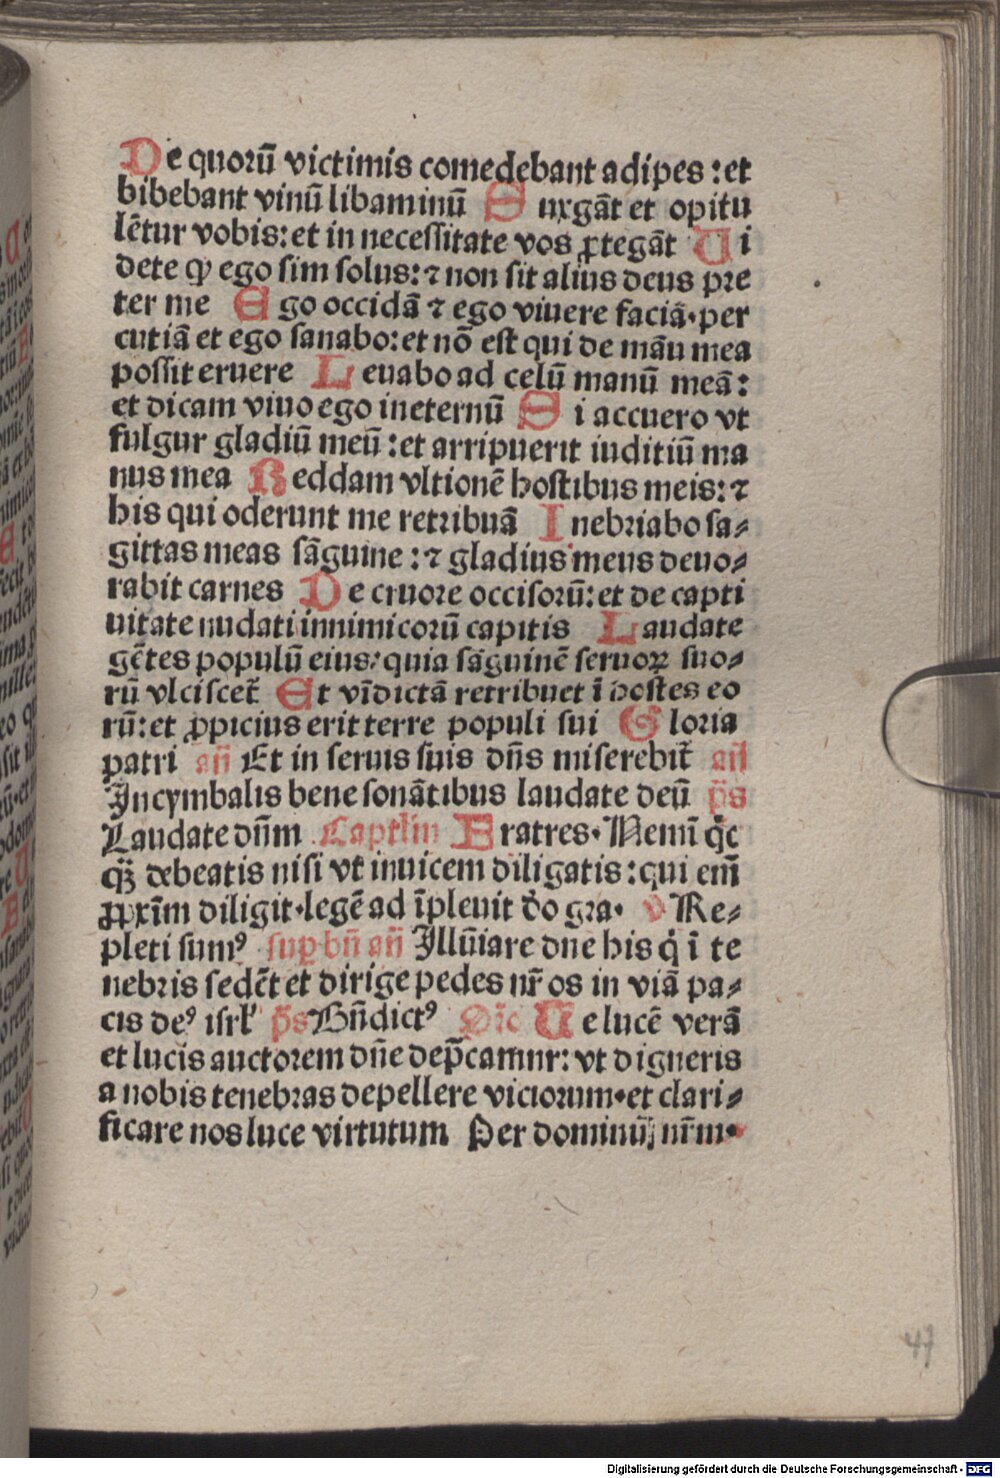 De quorū victimis comedebant adipes : et
bibebant vinū libaminū Surgāt et opitu
lētur vobis: et in necessitate vos ꝓtegāt Vi
dete ꝙ ego sim solus: ⁊ non sit alius deus pre
ter me Ego occidā ⁊ ego viuere faciā· per
cutiā et ego sanabo: et nō est qui de manu mea
possit eruere Leuabo ad celū manū meā:
et dicam viuo ego in eternū Si accuero vt
fulgur gladiū meū : et arripuerit iuditiū ma
nus mea Reddam vltionē hostibus meis: ⁊
his qui oderunt me retribuā Inebriabo sa⸗
gittas meas sāguine : ⁊ gladius meus deuo⸗
rabit carnes De cruore occisorū: et de capti
uitate nudati innimicorū capitis Laudate
gētes populū eius: quia sāguinē seruoꝝ suo⸗
rū vlciscet᷑ Et vīdictā retribuet ī hostes eo
rū: et ꝓpicius erit terre populi sui Gloria
patri an̄ Et in seruis suis dn̄s miserebit᷑ an̄
In cymbalis bene sonātibus laudate deū p̄s
Laudate dn̄m Captl̄m Fratres· Nemī qͥc
qꝫ debeatis nisi vt inuicem diligatis : qui em̄
ꝓxīm diligit· legē ad īpleuit d̄o gra· v Re⸗
pleti sumꝰ sup bn̄ an̄ Illūiare dn̄e his qͥ ī te
nebris sedēt et dirige pedes nr̄os in viā pa⸗
cis deꝰ isrl̄ p̄s Bn̄dictꝰ Orō Ve lucē verā
et lucis auctorem dn̄e dep̄camur: vt digneris
a nobis tenebras depellere viciorum· et clari⸗
ficare nos luce virtutum Per dominū nr̄m·
47
Digitalisierung gefördert durch die Deutsche Forschungsgemeinschaft - DFG